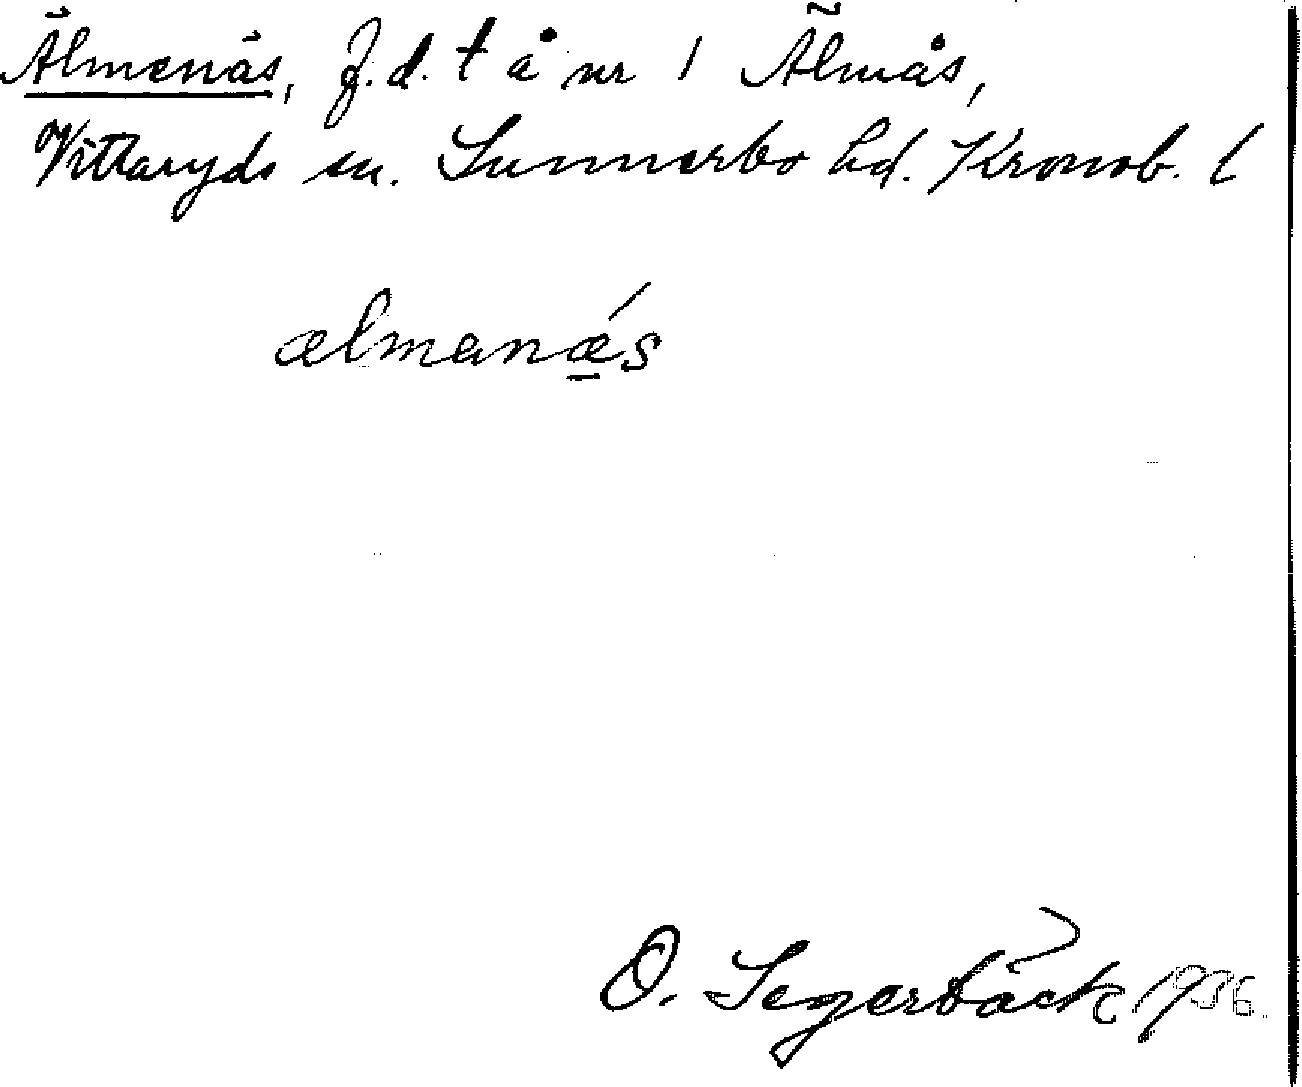 Älmenäs, f.d. t å nr 1 Älmås,
Vittaryds sn. Sunnerbo hd. Kronob. l
ælmanǽs
O. Segerbäck 1936.